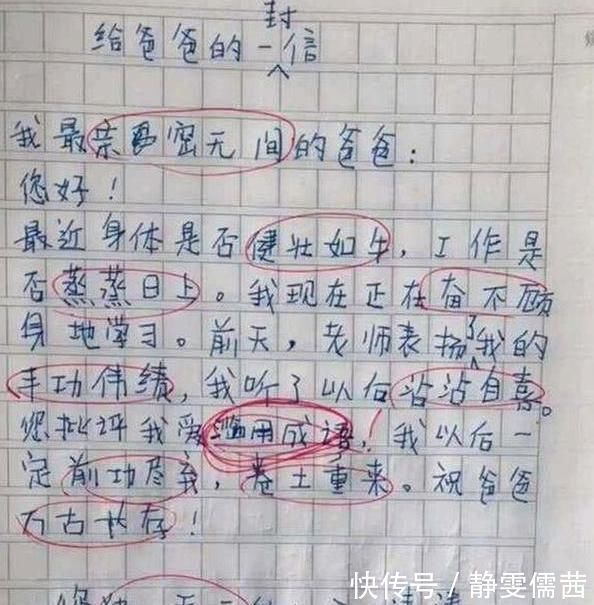 给爸爸的一封信
我最亲密无间的爸爸:
您好!
最近身体是否健壮如牛,工作是
否蒸蒸日上。我现在正在奋不顾
身地学习。前天,老师表扬了我的
丰功伟绩,我听了以后沾沾自喜。
您批评我爱滥用成语,我以后一
定前功尽弃,卷土重来。祝爸爸
万古长存!
快传号/静雯儒茜